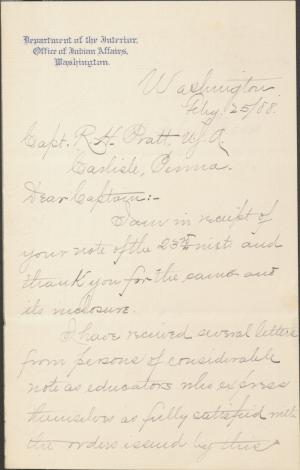 Department of the Interior,
Office of Indian Affairs,
Washington.
Washington
Feby. 25/88.
Capt. R. H. Pratt. U.S.A.
Carlisle, Penna.
Dear Captain:-
I am in receipt of
your note of the 23rd inst. and
thank you for the same and
its inclosure.
I have received several letters
from persons of considerable
note as educators who express
themselves as fully satisfied with
the orders issued by this